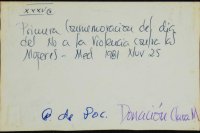 XXXVG
Primera Conmemoración del día
del No a la Violencia contra la
Mujeres - Med 1981 Nov 25
C de Doc. Donación Clara M